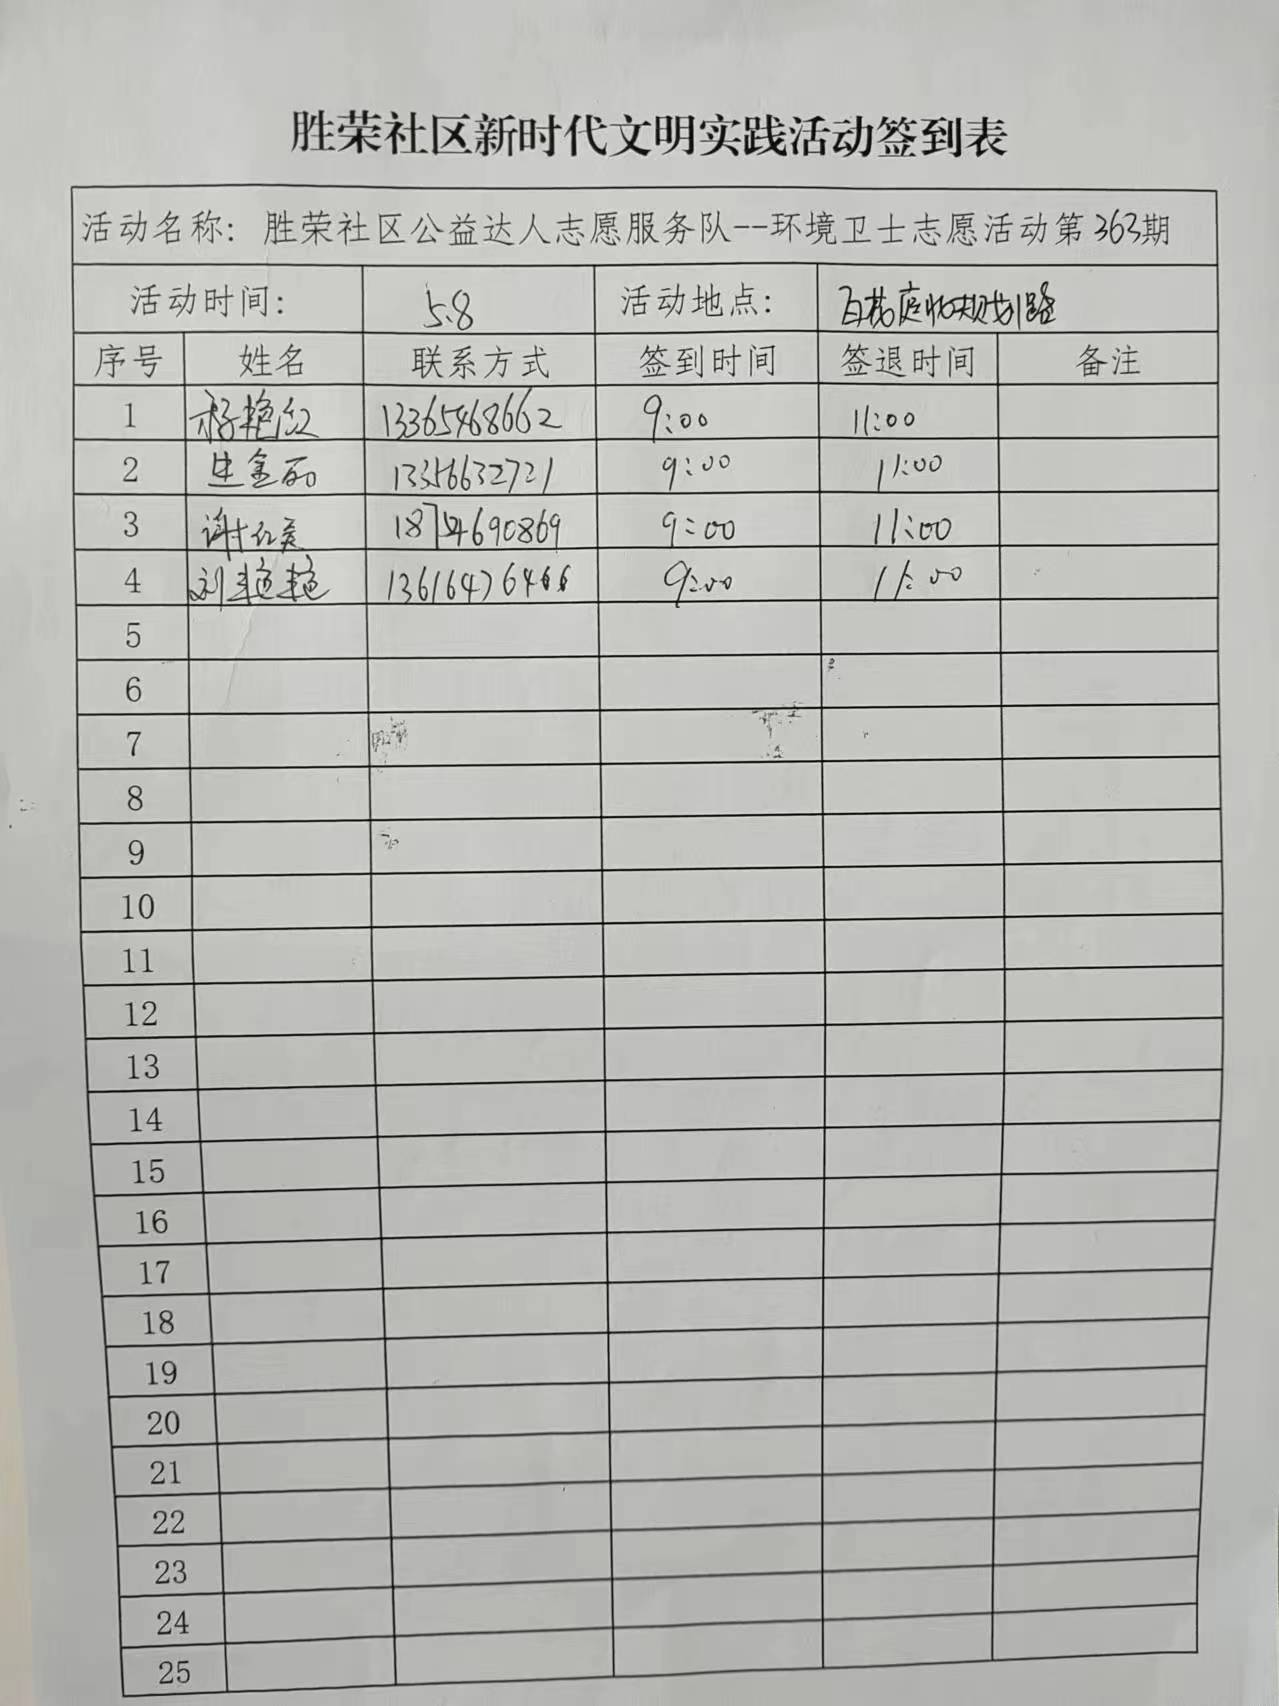 胜荣社区新时代文明实践活动签到表
活动名称: 胜荣社区公益达人志愿服务队--环境卫士志愿活动第363期
活动时间: 5.8 活动地点: 百花庭北规划路
序号 姓名 联系方式 签到时间 签退时间 备注
1 杨艳红 13365468662 9:00 11:00
2 金丽 13356632721 9:00 11:00
3 谢红美 18754690869 9:00 11:00
4 刘艳艳 13616476466 9:00 11:00
5
6
7
8
9
10
11
12
13
14
15
16
17
18
19
20
21
22
23
24
25